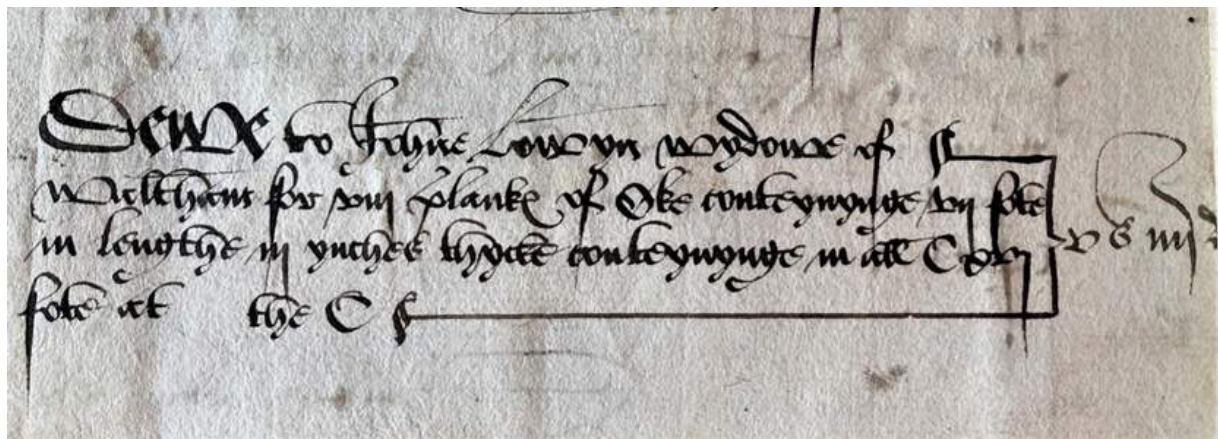 Dewe to Johne Lowyn wydowe of
Waltham for plank of Oke conteynynge vij fote
in lengthe iij ynches thycke conteynynge in all C
v s iiij d
fote at the C